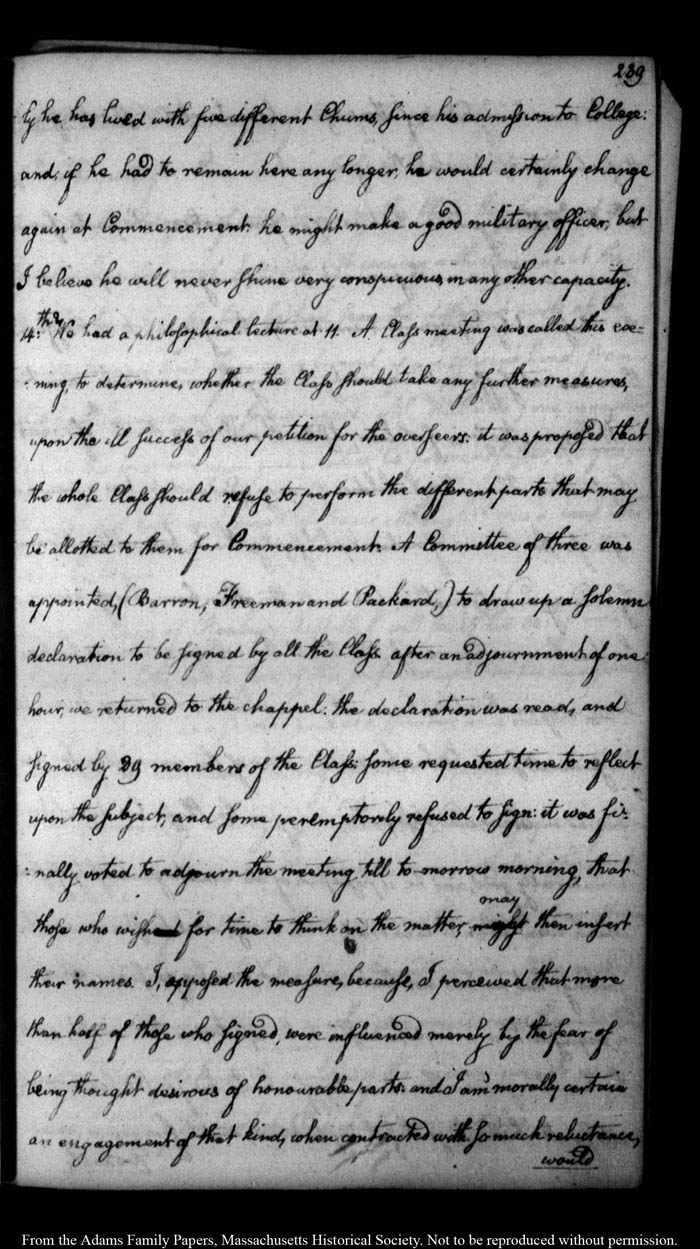 239
ly he has lived with five different Chums, since his admission to College:
and, if he had to remain here any longer, he would certainly change
again at Commencement. he might make a good military officer, but
I believe he will never shine very conspicuous, in any other capacity.
14:th We had a philosophical lecture at 11. A Class meeting was called this eve-
:ning, to determine, whether the Class should take any further measures,
upon the ill success of our petition for the overseers: it was proposed that
the whole Class should refuse to perform the different parts that may
be allotted to them for Commencement. A Committee of three was
appointed, (Barron, Freeman and Packard,) to draw up a solemn
declaration to be signed by all the Class. after an adjournment of one
hour, we returned to the chappel: the declaration was read, and
signed by 29 members of the Class: some requested time to reflect
upon the subject, and some peremptorely refused to sign: it was fi:
:nally voted to adjourn the meeting till to-morrow morning, that
may
those who wish for time to think on the matter, might then insert
their names. I, opposed the measure, because, I perceived that more
than half of those who signed, were influenced merely by the fear of
being thought desirous of honourable parts: and I am morally certain
an engagement of that kind, when contracted with so much reluctance,
would
From the Adams Family Papers, Massachusetts Historical Society. Not to be reproduced without permission.